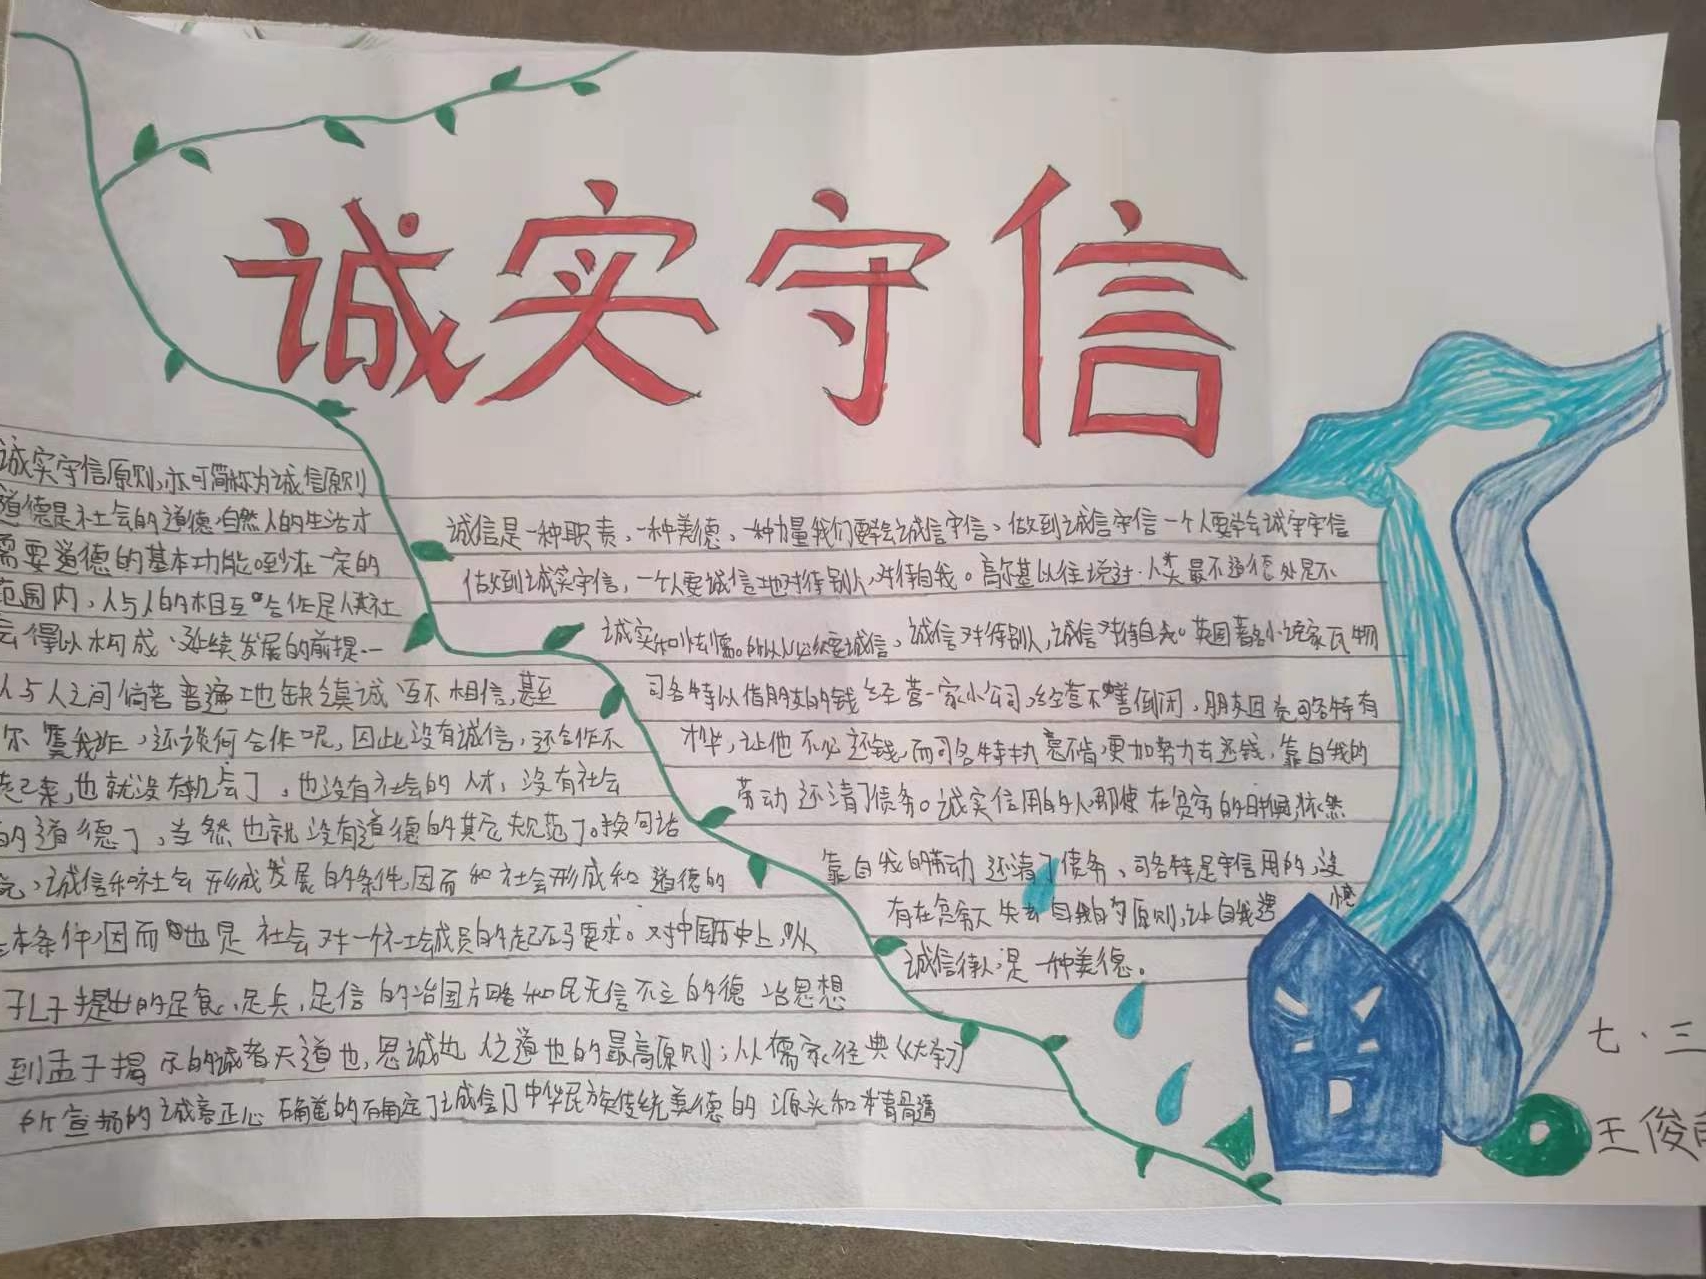 诚实守信
诚实守信原则,亦可简称为诚信原则
道德是社会的道德,自然人的生活才
需要道德的基本功能。在一定的
范围内,人与人的相互合作是人类社
会得以构成、延续发展的前提.一
人与人之间倘若普遍地缺真诚互不相信,甚至
尔虞我诈,还谈何合作呢,因此没有诚信,还合作不
起来,也就没有机会了,也没有社会的人才,没有社会
的道德了,当然也就没有道德的其它规范了。换句话
说,诚信和社会形成发展的条件,因而和社会形成和道德的
基本条件,因而也是社会对一个社会成员的起码要求。对中国历史上,从
孔子提出的足食、足兵,足信的治国方略和民无信不立的德治思想
到孟子揭示的诚者天道也,思诚也人之道也的最高原则;从儒家经典《大学》
所宣扬的诚意正心确定了诚信乃中华民族传统美德的源头和精骨
诚信是一种职责、一种美德、一种力量我们要学会诚信守信、做到诚信守信一个人要学会诚守守信
做到诚实守信,一个人要诚信地对待别人,对待自我。高尔基以往说过:人类最不道德处是不
诚实和怯懦。所以人必须要诚信,诚信对待别人,诚信对待自我。英国著名小说家瓦物
司各特以借朋友的钱经营一家小公司,经营不善倒闭,朋友因司各特有
才华,让他不必还钱,而司各特执意不肯,更加努力去还钱,靠自我的
劳动还清了债务。诚实信用的人,即使在贫穷的时候,依然
靠自我的劳动还清了债务、司各特是守信用的,没
有在贫穷下失去自我的原则,让自我遗憾
诚信待人,是一种美德。
七·三
王俊